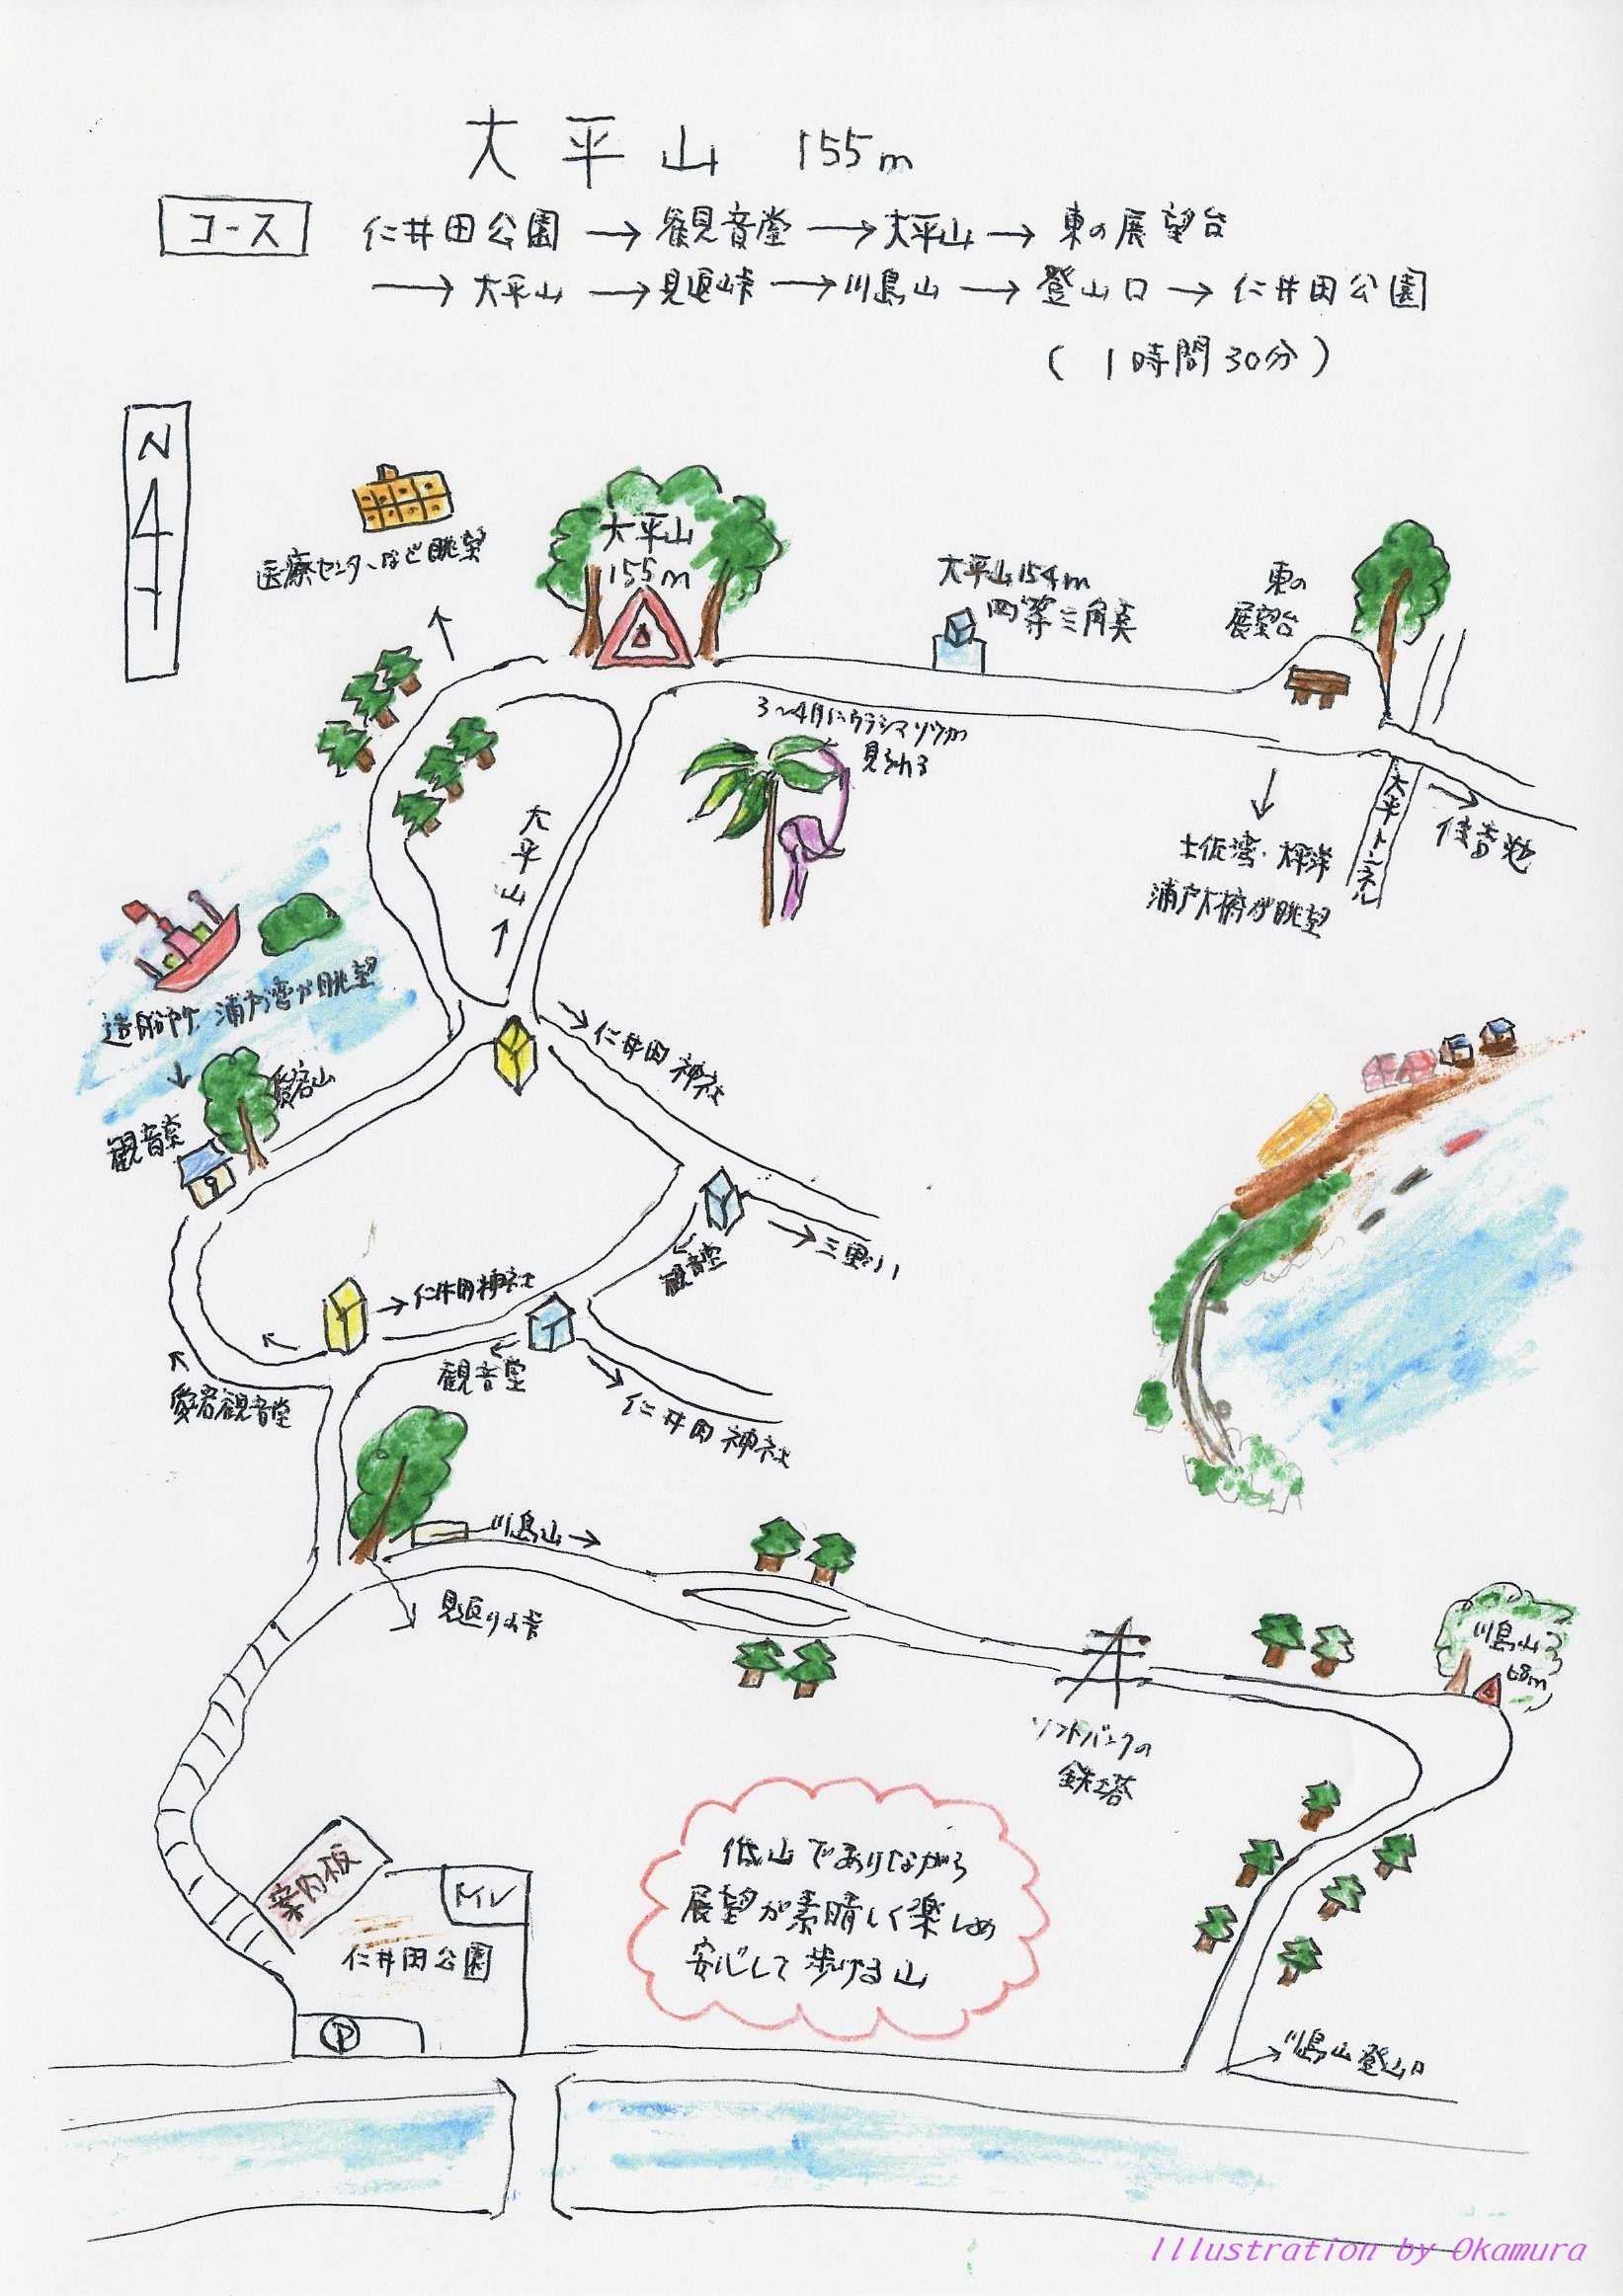 大平山 155m
コース 仁井田公園 → 観音堂 → 大平山 → 東の展望台
→ 大平山 → 見返峠 → 川島山 → 登山口 → 仁井田公園
(1時間30分)
N
医療センターなど眺望
大平山
155m
大平山154m
四等三角点
東の
展望台
3〜4月にウラシマソウが
見られる
大平山
↑
土佐湾・太平洋
浦戸大橋が眺望
大平トンネル
造船所 浦戸湾が眺望
→ 仁井田神社
愛宕山
観音堂
→ 三里小
観音堂
→ 仁井田神社
観音堂
愛宕観音堂
→ 仁井田神社
川島山 →
見返り峠
川島山
68m
ソフトバンクの
鉄塔
低山でありながら
展望が素晴しく楽しめ
安心して歩ける山
案内板
トイレ
仁井田公園
P
川島山登山口
Illustration by Okamura